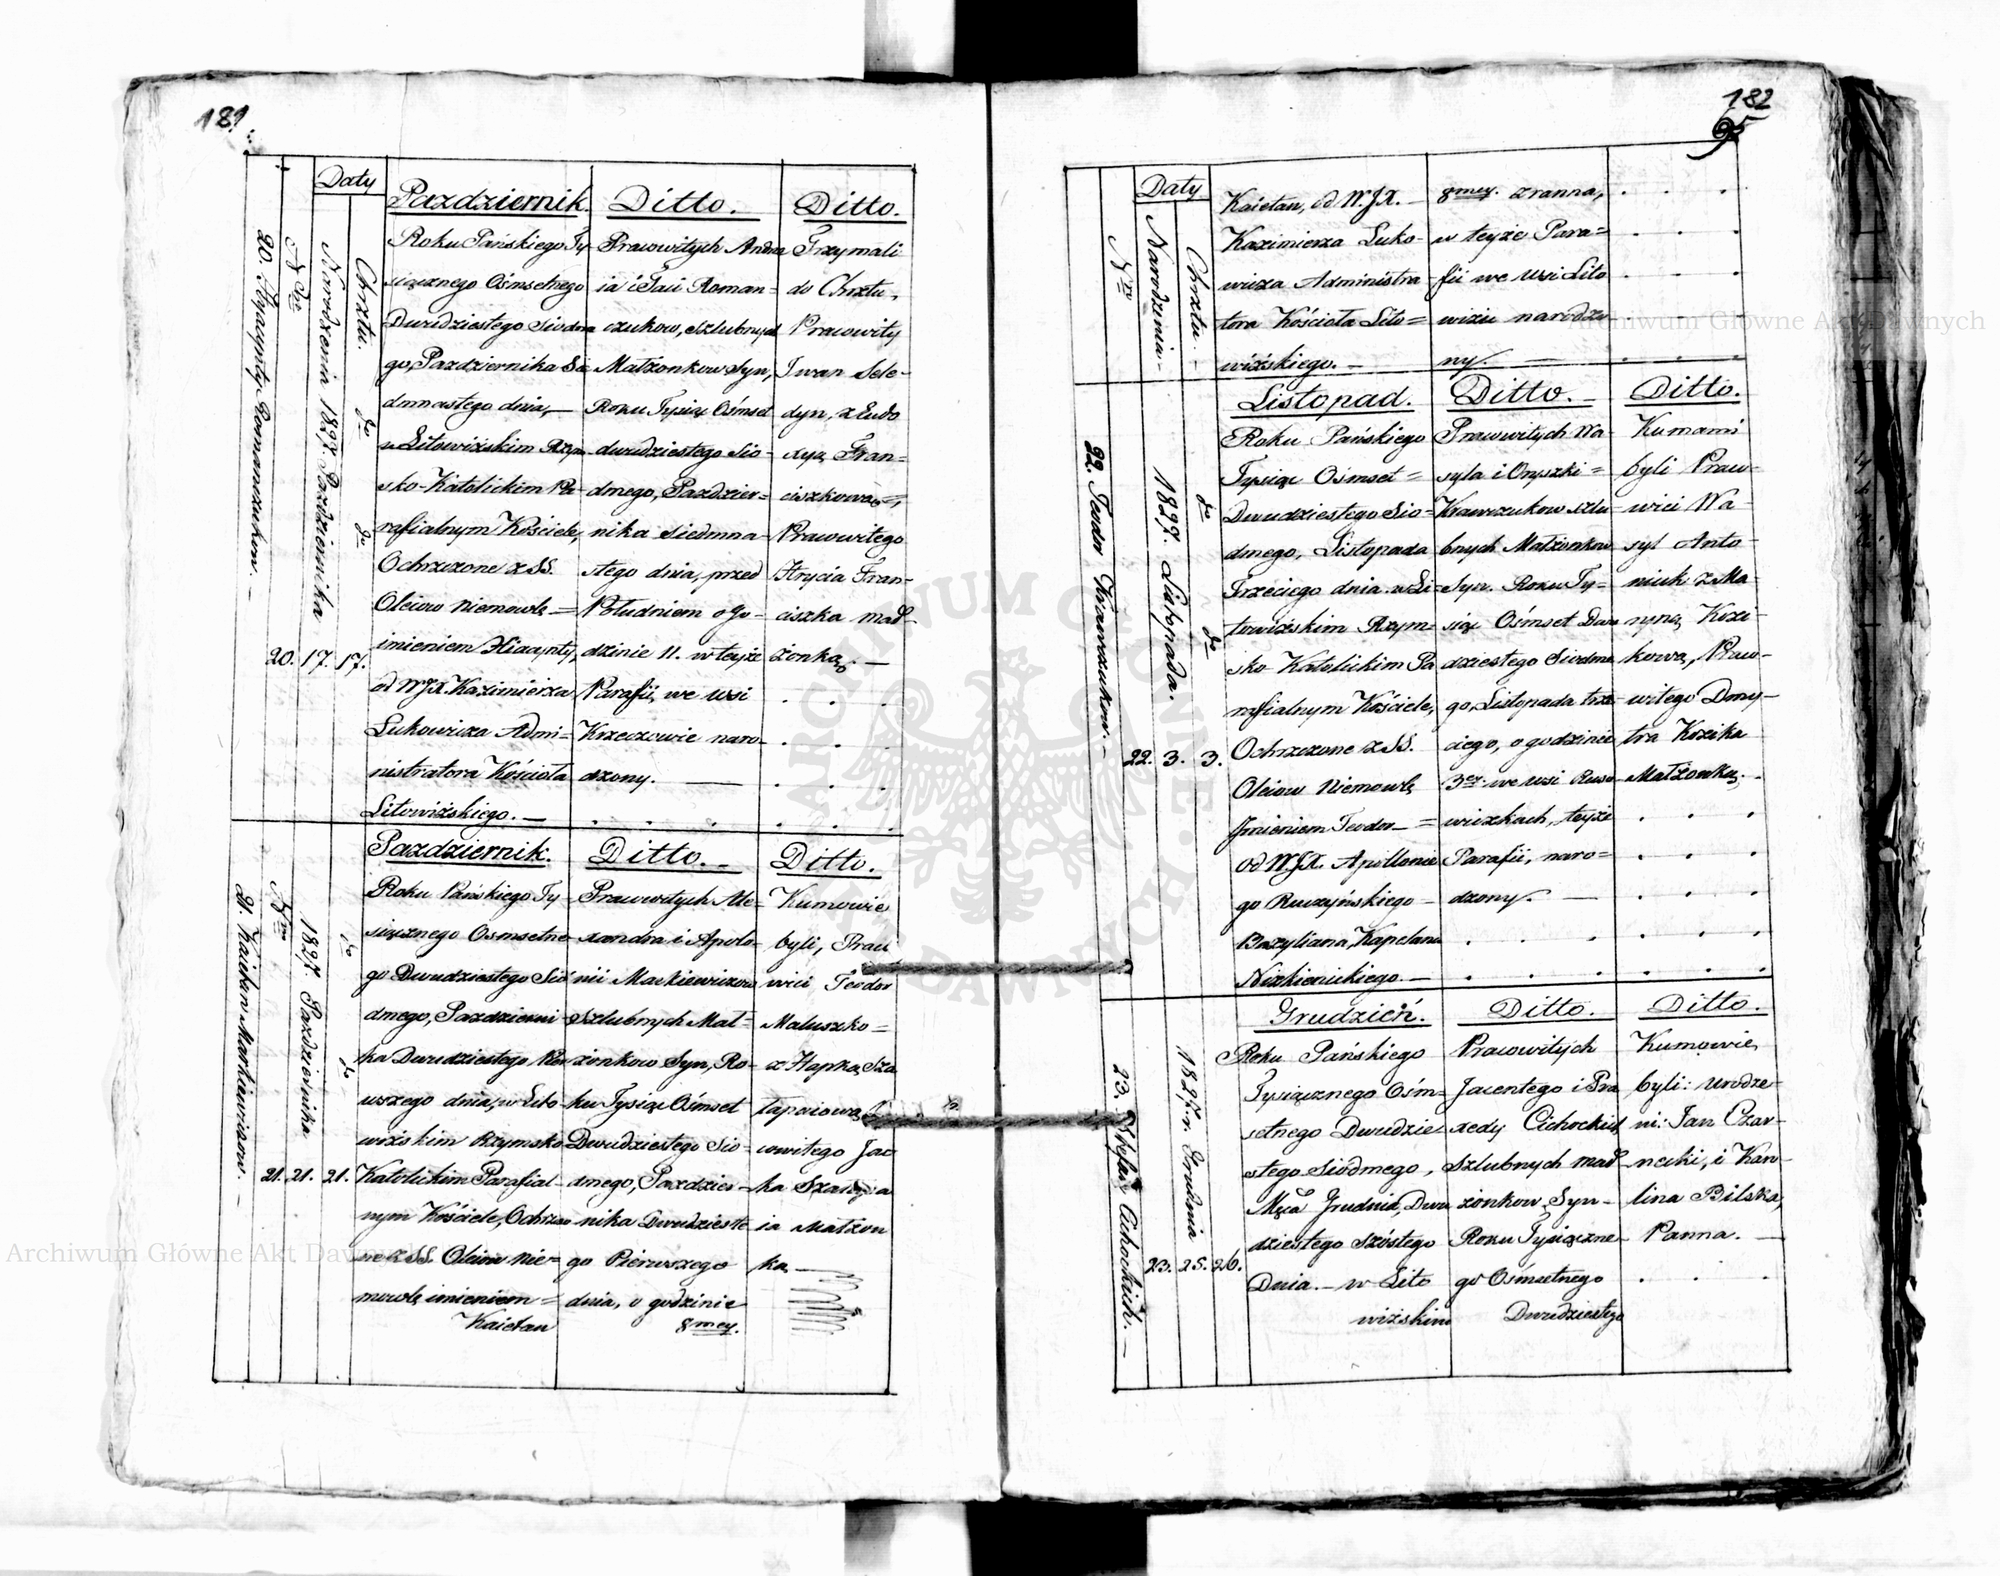 181
Daty
Nro
Narodzenia 1827. Pazdziernika
Chrztu.
do
do
20. Hyacynty Romanczukow.
20. 17. 17.
Pazdziernik.
Roku Pańskiego Ty-
siącznego Ośmsetnego
Dwudziestego Siodme
go, Pazdziernika Sie
dmnastego dnia,
w Litowizskim Rzym
sko-Katolickim Pa-
rafialnym Kościele,
Ochrzczone z SS.
Oleiow Niemowle =
imieniem Hiacynty,
od WJX. Kazimierza
Lukowicza Admi=
nistratora Kościoła
Litowizskiego.
Ditto.
Prawowitych Andre
ia i Taci Roman=
czukow, szlubnych
Małżonkow Syn,
Roku Tysiąc Ośmset
dwudziestego Sio-
dmego, Pazdzier=
nika siedmna-
stego dnia, przed
Południem o Go-
dzinie 11. w teyże
Parafii, we wsi
Krzeczowie naro-
dzony.
Ditto.
Trzymali
do Chrztu,
Prawowity
Iwan Sele-
dyn, z Eudo
xyą Fran=
ciszkową,
Prawowitego
Hrycia Fran-
ciszka mał-
żonką.
Nro
1827. Pazdziernika
do
do
21. Kaietan Markiewiczow.
21. 21. 21.
Pazdziernik.
Roku Pańskiego Ty-
siącznego Osmsetne
go Dwudziestego Sio
dmego, Pazdzierni
ka Dwudziestego Pier
wszego dnia, w Lito-
wizskim Rzymsko
Katolickim Parafial-
nym Kościele, Ochrzczo
ne z SS. Oleiow Nie=
mowlę imieniem =
Kaietan
Ditto.
Prawowitych Ale=
xandra i Apolo-
nii Markiewiczow
Szlubnych Mał=
żonkow Syn, Ro-
ku Tysiąc Ośmset
Dwudziestego Sio-
dmego, Pazdzier
nika Dwudzieste
go Pierwszego
dnia, o godzinie
8mey.
Ditto.
Kumowie
byli, Prawo
wici Teodor
Maluszko =
z Hapką Sza
łapaiową,
wowitego Jac
ka
ia Małżon
ką
182
95
Daty
Nro
Narodzenia
Chrztu.
Kaietan, od WJX.
Kazimierza Luko-
wicza Administra
tora Kościoła Lito=
wizskiego.
8mey. zranna,
w teyże Para=
fii we wsi Lito
wizu narodzo
ny.
22. Teodor Krawczukow.
1827. Listopada.
do
do
22. 3. 3.
Listopad.
Roku Pańskiego
Tysiąc Ośmset =
Dwudziestego Sio-
dmego, Listopada
Trzeciego dnia w Li-
towizskim Rzym=
sko Katolickim Pa
rafialnym Kościele,
Ochrzczone z SS.
Oleiow Niemowlę
Imieniem Teodor =
od WJX. Apollonie
go Ruczyńskiego
Bazyliana, Kapelana
Nizkienickiego.
Ditto.
Prawowitych Wa-
syla i Onyszki =
Krawczukow szlu-
bnych Małżonkow
Syn. Roku Ty-
siąc Ośmset Dwu
dziestego Siodme
go, Listopada trze
ciego, o godzinie
3ey. we wsi Ruso
wiczkach, teyże
Parafii, naro=
dzony.
Ditto.
Kumami
byli Prawo-
wici Wa-
syl Anto-
niuk z Ma-
ryną Kozi-
kową, Prawo-
witego Dmy-
tra Kozika
Małżonką.
23. Stefan Cichockich.
1827. r. Grudnia
23. 25. 26.
Grudzień.
Roku Pańskiego
Tysiącznego Ośm=
setnego Dwudzie
stego Siodmego,
Mca Grudnia, Dwu
dziestego szóstego
Dnia. w Lito
wizskim
Ditto.
Prawowitych
Jacentego i Pra
xedy Cichockich
Szlubnych mał
żonkow, Syn
Roku Tysiączne
go Ośmsetnego
Dwudziestego
Ditto.
Kumowie
byli: Urodze-
ni: Jan Czar-
necki, i Karo-
lina Bilska,
Panna.
ARCHIWUM GŁÓWNE AKT DAWNYCH
Archiwum Główne Akt Dawnych
Archiwum Główne Akt Dawnych